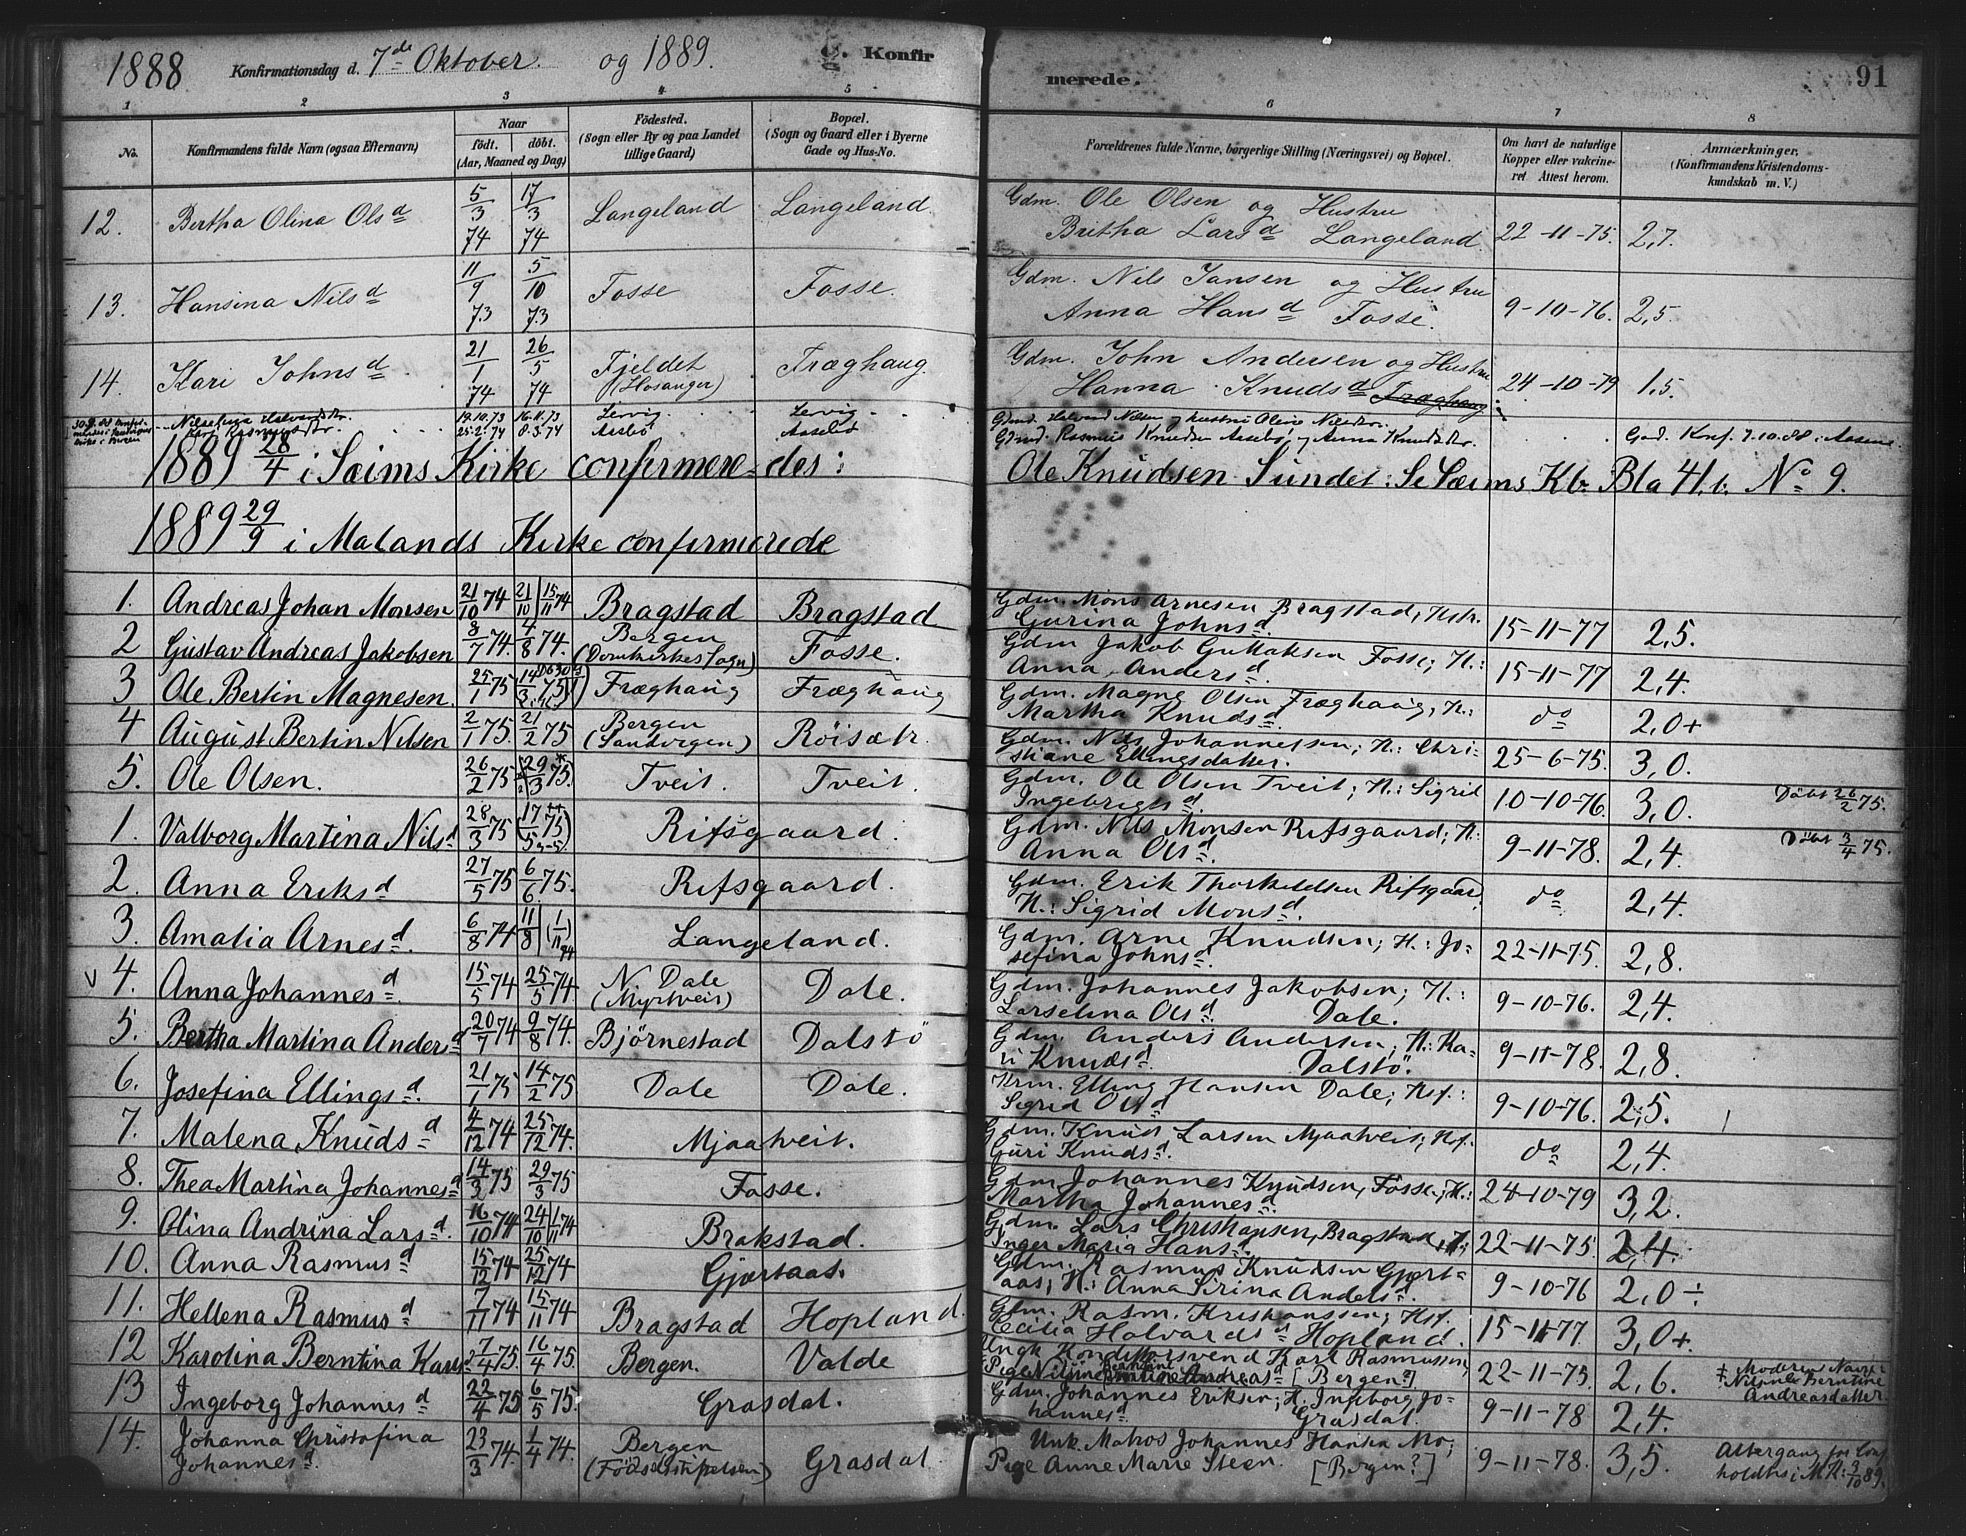 1888 Konfirmationsdag d. 7de Oktober og 1889. g. Konfir
merede. 91
1 2 3 4 5 6 7 8
No. Konfirmandens fulde Navn (ogsaa Efternavn) Naar
født. døbt.
(Aar, Maaned og Dag)
Fødested.
(Sogn eller By og paa Landet
tillige Gaard)
Bopæl.
(Sogn og Gaard eller i Byerne
Gade og Hus-No.
Forældrenes fulde Navne, borgerlige Stilling (Næringsvei) og Bopæl.
Om havt de naturlige
Kopper eller vakcine-
ret Attest herom.
Anmærkninger,
(Konfirmandens Kristendoms-
kundskab m. V.)
12. Bertha Olina Olsd 5/3 74 17/3 74 Langeland Langeland. Gdm. Ole Olsen og Hustru
Britha Larsd Langeland. 22-11-75. 2,7.
13. Hansina Nilsd 11/9 73 5/10 73 Fosse Fosse. Gdm. Nils Jansen og Hustru
Anna Hansd Fosse. 9-10-76. 2,5.
14. Kari Johnsd 21/1 74 26/5 74 Fjeldet
(Hosanger) Fræghaug. Gdm. John Andersen og Hustru
Hanna Knudsd Fræghaug 24-10-79 1,5.
19.10.73 16.11.73 Lervig Lervig
25.2.74 8.3.74 Aasebø Aasebø
Gdmd. Rasmus Knudsen Aasebø, og Anna Knudsdtr. God. Konf. 7.10.88 i Aasene
1889 28/4 i Sæims Kirke confirmere-des: Ole Knudsen Sundet: Se Sæims Kb. Bla 41.b. No 9.
1889 29/9 i Malands Kirke confirmerede
1. Andreas Johan Monsen 21/10 74 21/10 | 15/11 74 Bragstad Bragstad Gdm. Mons Arnesen Bragstad; Hstr.
Gurina Johnsd. 15-11-77 2,5.
2 Gustav Andreas Jakobsen 8/7 74. 4/8 74. Bergen
(Domkirkes Sogn) Fosse. Gdm Jakob Gullaksen Fosse; H.:
Anna Andersd. 15-11-77 2,4.
3 Ole Bertin Magnesen. 25/1 75 14/3 75 Fræghaug Fræghaug Gdm. Magne Olsen Fræghaug, H.:
Martha Knudsd. do 2,0+
4 August Bertin Nilsen 2/1 75. 21/2 75 Bergen
(Sandvigen) Røisætr. Gdm. Nils Johannessen; H.: Chri-
stiane Ellingsdatter. 25-6-75. 3,0.
5. Ole Olsen. 26/2 75 29/3 75. Tveit. Tveit. Gdm. Ole Olsen Tveit; H.: Sigrid
Ingebrigtsd. 10-10-76. 3,0. Døbt 26/2 75.
1. Valborg Martina Nilsd 28/3 75 17/5 75 Rifsgaard. Gdm. Nils Monsen Rifsgaard; H.:
Anna Olsd. 9-11-78. 2,4. Døbt 3/4 75.
2. Anna Eriksd 27/5 75 6/6 75. Rifsgaard. Gdm. Erik Thorkildsen Rifsgaard
H.: Sigrid Monsd. do 2,4.
3. Amalia Arnesd. 6/8 74 11/8 | (1/11) 74 Langeland. Gdm. Arne Knudsen; H.: Jo-
sefina Johnsd. 22-11-75. 2,8.
V 4. Anna Johannesd. 15/5 74 25/5 74 N. Dale
(Myrtveit) Dale. Gdm. Johannes Jakobsen; H.:
Larselina Olsd. Dale. 9-10-76. 2,4.
5. Bertha Martina Andersd 20/7 74 9/8 74. Bjørnestad Dalstø Gdm. Anders Andersen; H.: Ka-
ri Knudsd. Dalstø. 9-11-78. 2,8.
6. Josefina Ellingsd. 21/1 75 14/2 75 Dale Dale. Krm. Elling Hansen Dale; Hst.:
Sigrid Olsd 9-10-76. 2,5.
7. Malena Knudsd 4/12 74 25/12 74. Mjaatveit. Gdm. Knud Larsen Mjaatveit; Hst.
Guri Knudsd. do 2,4.
8. Thea Martina Johannesd 14/3 75 29/3 75 Fosse. Gdm. Johannes Knudsen, Fosse; H.:
Martha Johannesd. 24-10-79 3,2.
9. Olina Andrina Larsd. 16/10 74 24/10 | 1/11 74 Brakstad. Gdm. Lars Christiansen, Bragstad, H.:
Inger Maria Hansd. 22-11-75. 2,4.
10. Anna Rasmusd 15/12 74 25/12 74 Gjærtaas. Gdm. Rasmus Knudsen Gjært-
aas; H.: Anna Sirina Andersd. 9-10-76 2,0÷
11. Hellena Rasmusd 7/11 74 15/11 74 Bragstad Hopland. Gdm. Rasm. Kristianssen; Hst.
Cecilia Halvardsd Hopland. 15-11-77. 3,0+.
12 Karolina Berntina Karlsd 7/4 75. 16/4 75. Bergen. Valde Ungk Konditorsvend Karl Rasmussen,
Pige Andreasd [Bergen?] 22-11-75. 2,6. + Moderens Navn:
Nilsine Berntine
Andreasdatter.
13 Ingeborg Johannesd 22/4 75 6/5 75. Grasdal. Gdm. Johannes Eriksen; H. Ingeborg Jo-
hannesd. Grasdal. 9-11-78 2,4.
14. Johanna Christofina
Johannesd. 23/3 74. 1/4 74. Bergen
(Fødselsstiftelsen) Grasdal. Unk. Matros Johannes Hansen Mo;
Pige Anne Marie Steen. [Bergen?] 9-11-78. 3,5. Altergang for Conf
holdtes i M.K: 3/10 89.